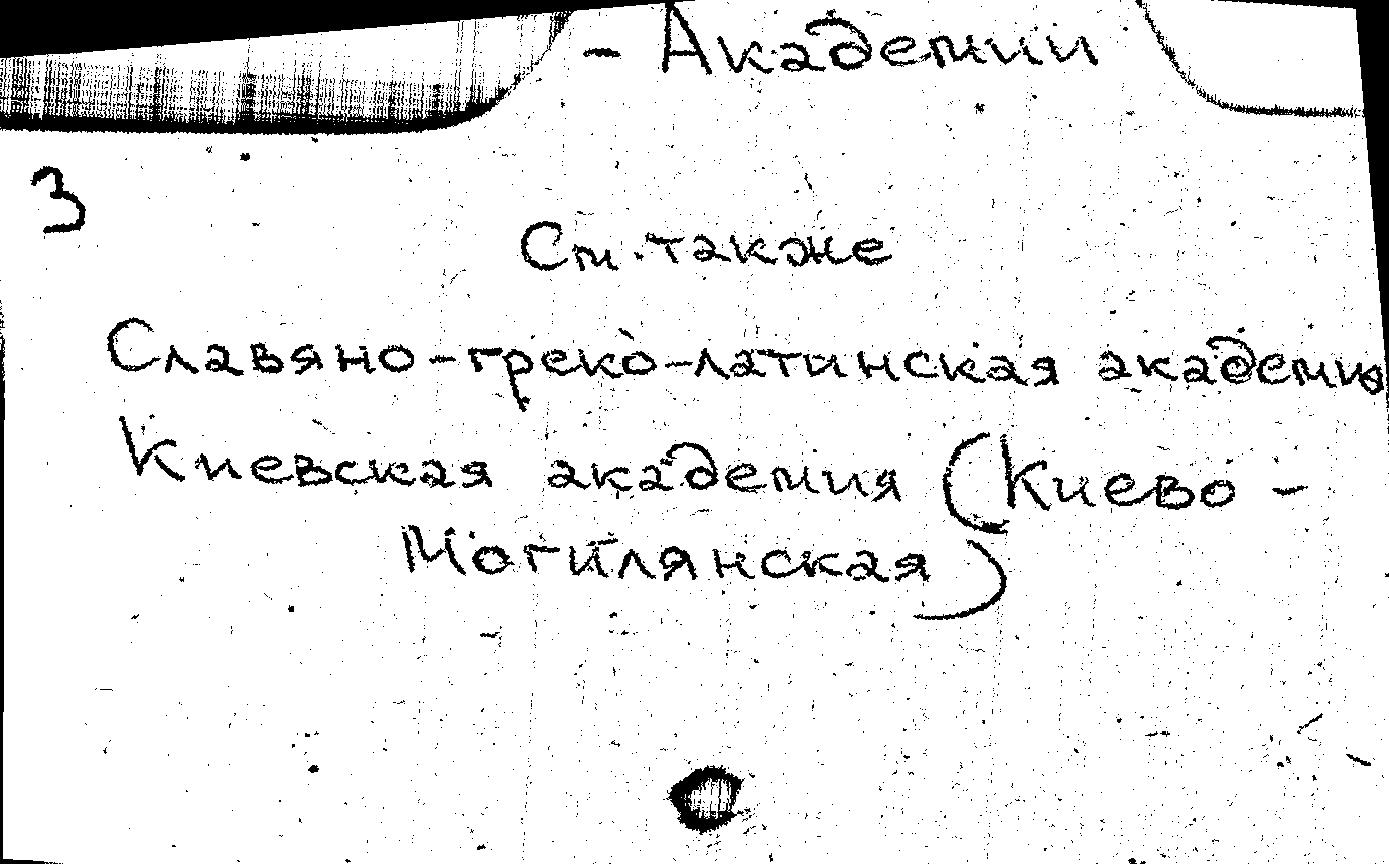 - Академии
3
См. также
Славяно-греко-латинская академия
Киевская академия (Киево -
Могилянская)